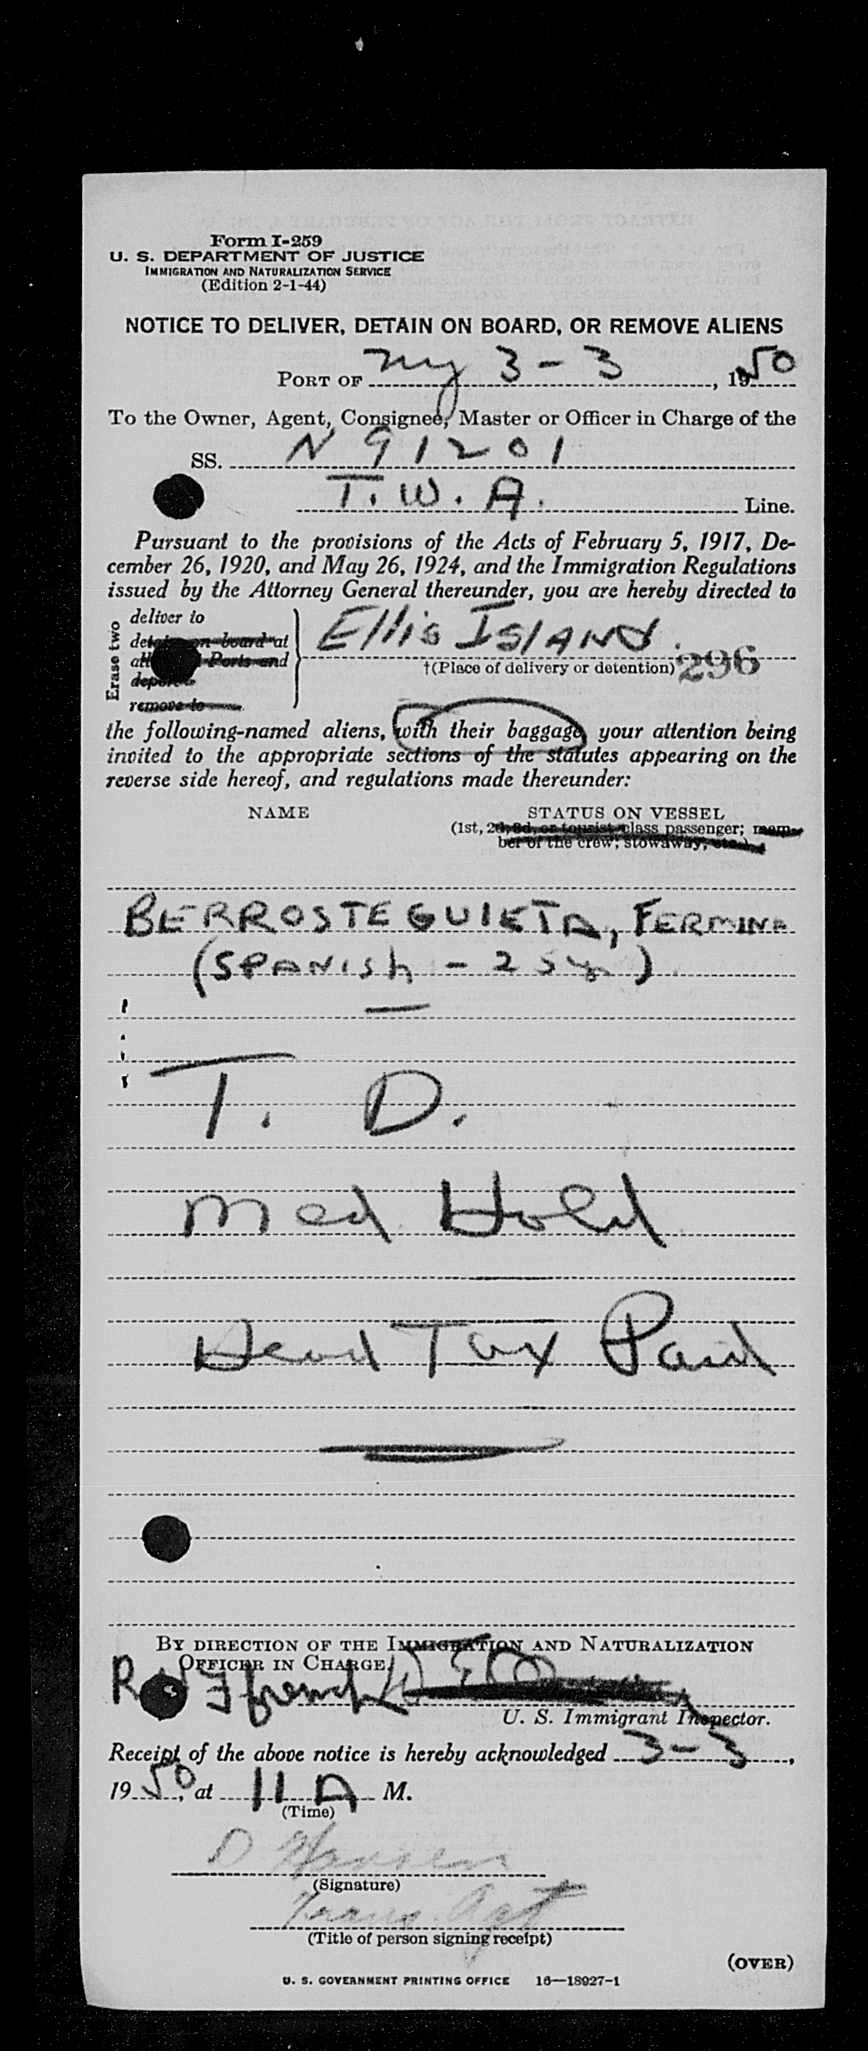 Form I-259
U. S. DEPARTMENT OF JUSTICE
IMMIGRATION AND NATURALIZATION SERVICE
(Edition 2-1-44)
NOTICE TO DELIVER, DETAIN ON BOARD, OR REMOVE ALIENS
PORT OF NY 3-3, 1950
To the Owner, Agent, Consignee, Master or Officer in Charge of the
SS. N 91201
T. W. A. Line.
Pursuant to the provisions of the Acts of February 5, 1917, De-
cember 26, 1920, and May 26, 1924, and the Immigration Regulations
issued by the Attorney General thereunder, you are hereby directed to
Erase two
deliver to
detain on board at
all Ports and
deport
remove to
Ellis ISLAND.
†(Place of delivery or detention) 296
the following-named aliens, with their baggage, your attention being
invited to the appropriate sections of the statutes appearing on the
reverse side hereof, and regulations made thereunder:
NAME STATUS ON VESSEL
(1st, 2d, 3d, or tourist class passenger; mem-
ber of the crew; stowaway, etc.)
BERROSTEGUIETA, FERMINA
(SPANISH - 25 )
T. D.
Med Hold
Head Tax Paid
BY DIRECTION OF THE IMMIGRATION AND NATURALIZATION
OFFICER IN CHARGE
R French
U. S. Immigrant Inspector.
Receipt of the above notice is hereby acknowledged 3-3,
1950, at 11 A M.
(Time)
D Hansen
(Signature)
Trans. Agt
(Title of person signing receipt)
(OVER)
U. S. GOVERNMENT PRINTING OFFICE 16—18927-1